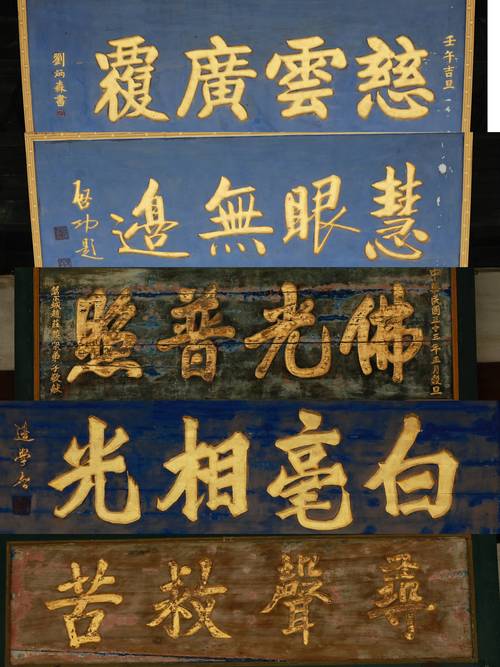 壬午吉旦
慈雲廣覆
劉炳森書
慧眼無邊
啓功題
中華民國三十三年一月穀旦
佛光普照
白毫相光
尋聲救苦